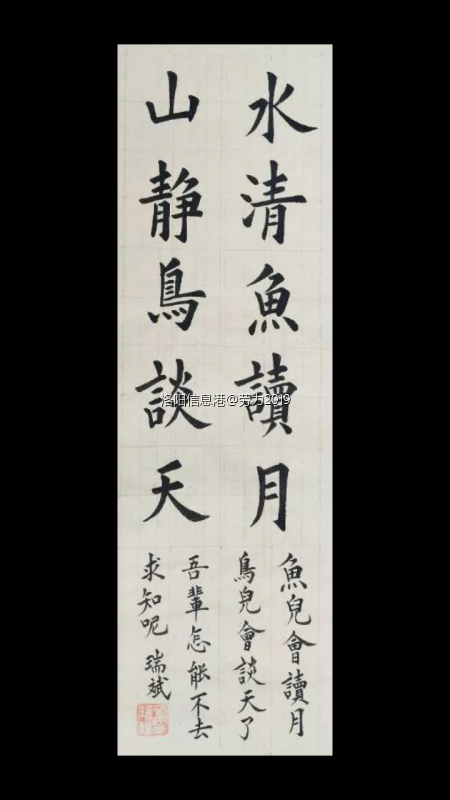 水清魚讀月
山静鳥談天
魚兒會讀月
鳥兒會談天了
吾輩怎能不去
求知呢 瑞斌
洛阳信息港@劳力2019